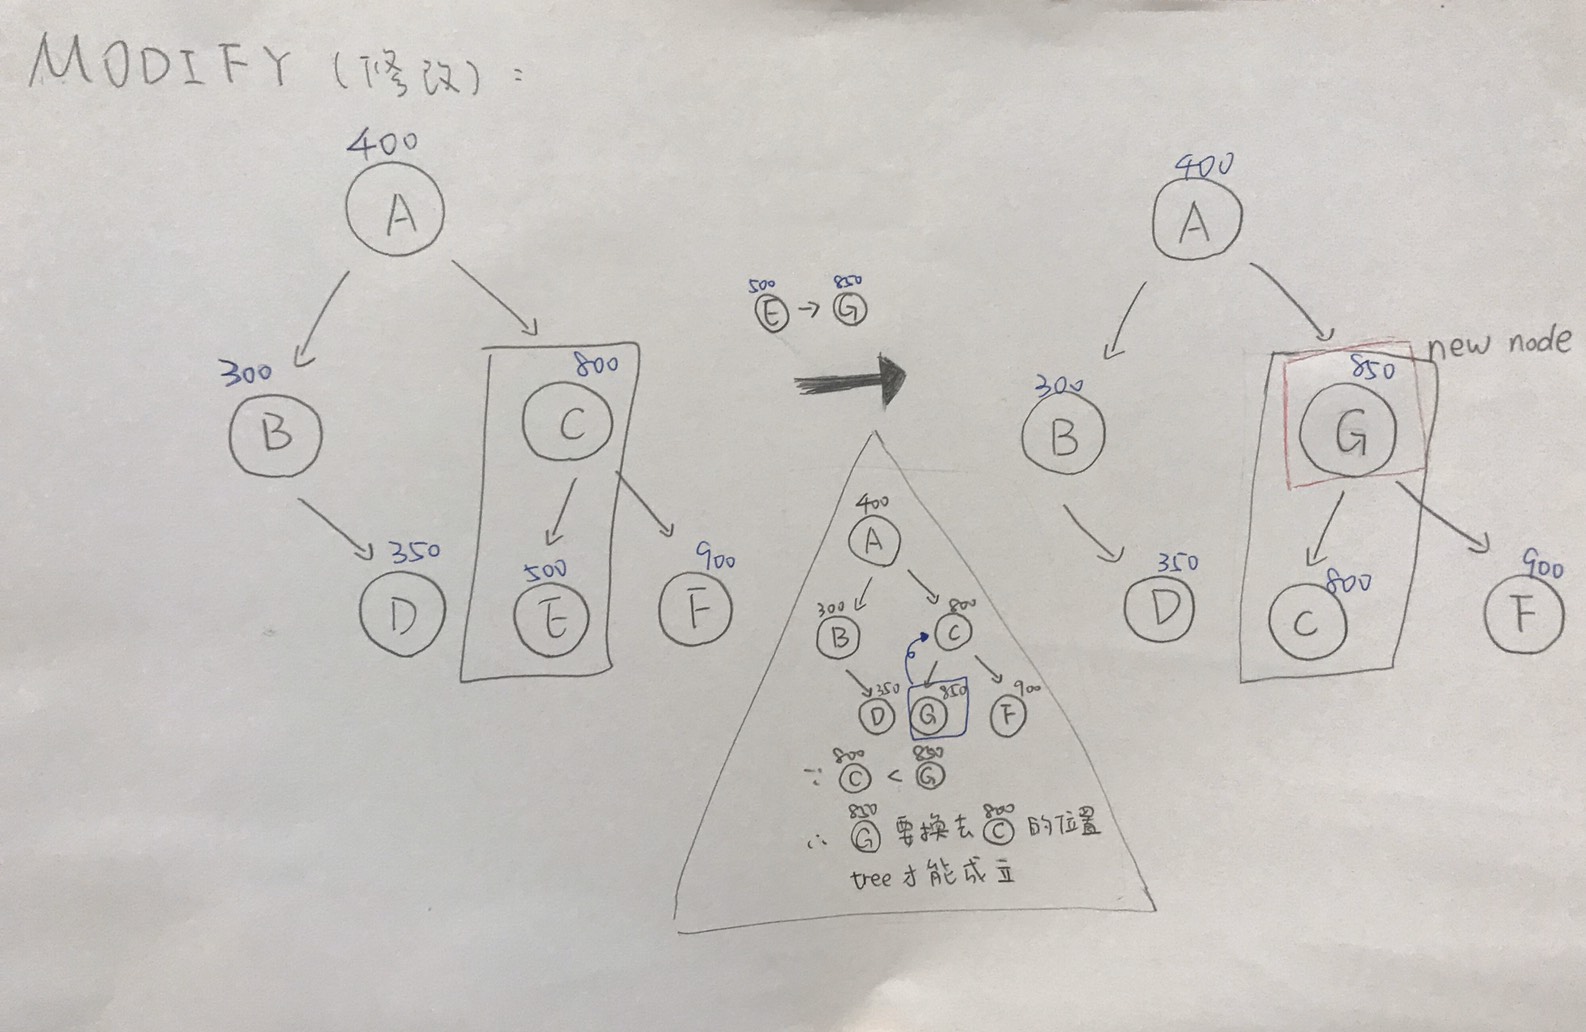 MODIFY (修改) :
400
A
300
B
800
C
350
D
500
E
900
F
500 850
E → G
400
A
300
B
800
C
350
D
850
G
900
F
∵ 800 C < 850 G
∴ 850 G 要換去 800 C 的位置
tree才能成立
400
A
300
B
new node
850
G
350
D
800
C
900
F